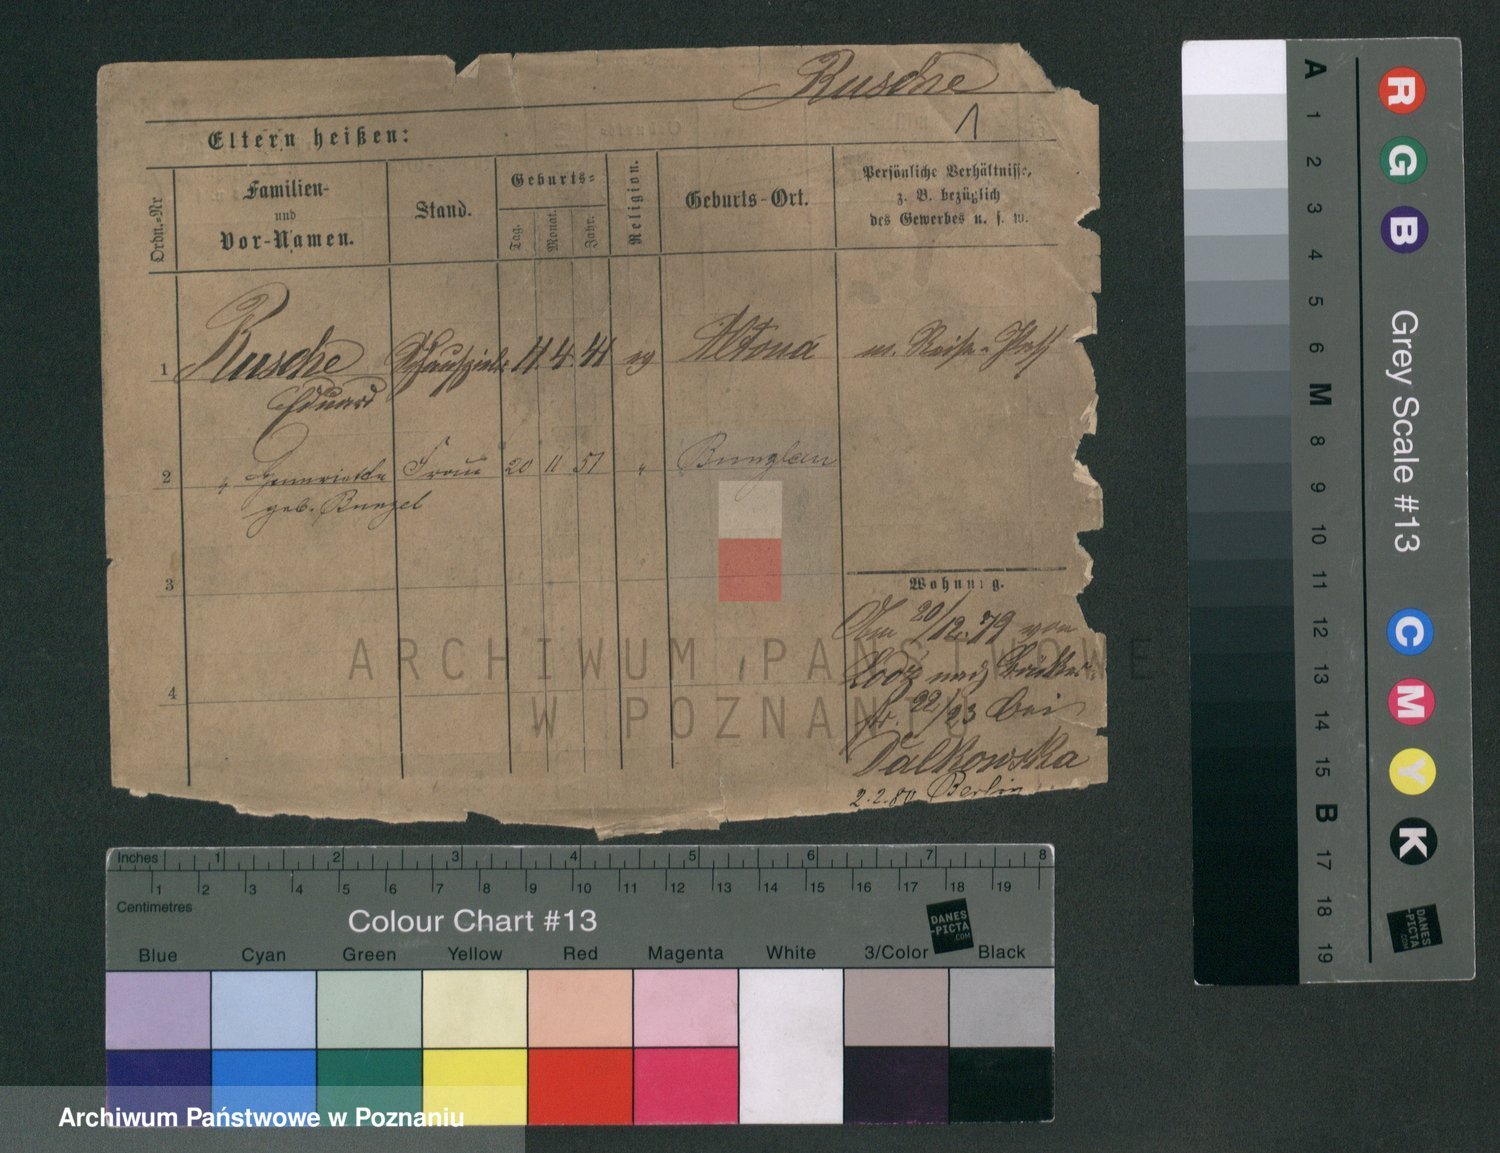 Rusche
1
Eltern heißen:
Ordn.-Nr
Familien-
und
Vor-Namen.
Stand.
Geburts-
Tag.
Monat.
Jahr.
Religion.
Geburts-Ort.
Persönliche Verhältnisse,
z. B. bezüglich
des Gewerbes u. s. w.
1 Rusche Schauspieler 11. 4. 41 ev Altona m. Reise-Paß
Eduard
2 " Henriette Frau 20 11 51 " Bunzlau
geb. Bunzel
3
Wohnung.
Am 20/12. 79 von
Lodz nach
str. 22/23 bei
4
Dalkowska
2.2.80 Berlin
ARCHIWUM PAŃSTWOWE
W POZNANIU
Inches 1 2 3 4 5 6 7 8
1 2 3 4 5 6 7 8 9 10 11 12 13 14 15 16 17 18 19
Centimetres
Colour Chart #13
DANES
-PICTA
.COM
Blue Cyan Green Yellow Red Magenta White 3/Color Black
Archiwum Państwowe w Poznaniu
A 1 2 3 4 5 6 M 8 9 10 11 12 13 14 15 B 17 18 19
R G B
Grey Scale #13
C M Y K
DANES
-PICTA
.COM